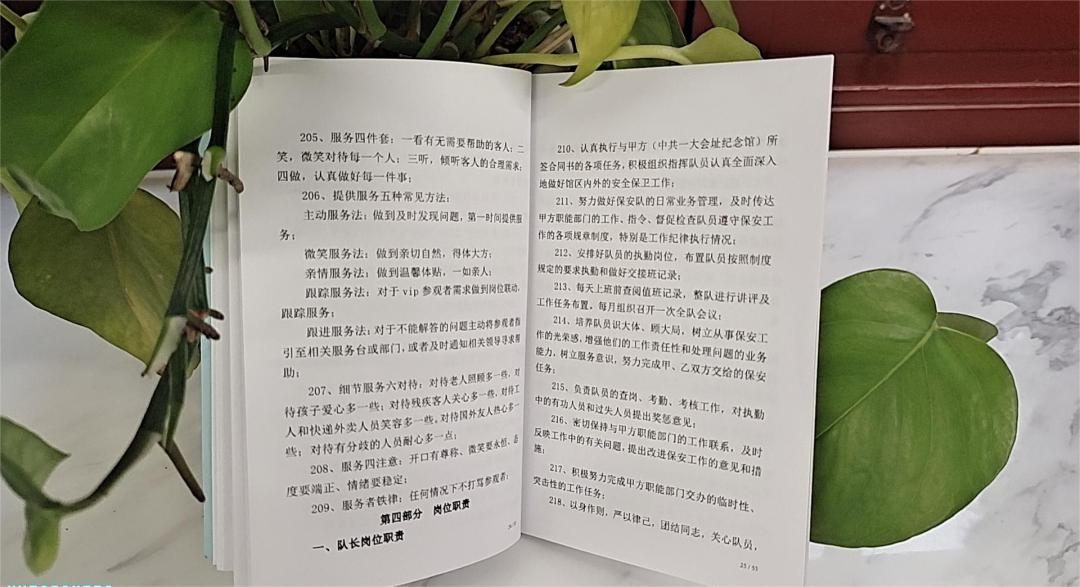 205、服务四件套：一看有无需要帮助的客人；二
笑，微笑对待每一个人；三听，倾听客人的合理需求；
四做，认真做好每一件事；
206、提供服务五种常见方法：
主动服务法：做到及时发现问题，第一时间提供服
务；
微笑服务法：做到亲切自然，得体大方；
亲情服务法：做到温馨体贴，一如亲人；
跟踪服务法：对于vip参观者需求做到岗位联动，
跟踪服务；
跟进服务法：对于不能解答的问题主动将参观者指
引至相关服务台或部门，或者及时通知相关领导寻求帮
助；
207、细节服务六对待：对待老人照顾多一些，对
待孩子爱心多一些；对待残疾客人关心多一些，对待工
人和快递外卖人员笑容多一些，对待国外友人热心多一
些；对待有分歧的人员耐心多一点；
208、服务四注意：开口有尊称、微笑要永恒、态
度要端正、情绪要稳定；
209、服务者铁律：任何情况下不打骂参观者；
第四部分 岗位职责
一、队长岗位职责
210、认真执行与甲方（中共一大会址纪念馆）所
签合同书的各项任务，积极组织指挥队员认真全面深入
地做好馆区内外的安全保卫工作；
211、努力做好保安队的日常业务管理，及时传达
甲方职能部门的工作、指令、督促检查队员遵守保安工
作的各项规章制度，特别是工作纪律执行情况；
212、安排好队员的执勤岗位，布置队员按照制度
规定的要求执勤和做好交接班记录；
213、每天上班前查阅值班记录，整队进行讲评及
工作任务布置，每月组织召开一次全队会议；
214、培养队员识大体、顾大局，树立从事保安工
作的光荣感，增强他们的工作责任性和处理问题的业务
能力，树立服务意识，努力完成甲、乙双方交给的保安
任务；
215、负责队员的查岗、考勤、考核工作，对执勤
中的有功人员和过失人员提出奖惩意见；
216、密切保持与甲方职能部门的工作联系，及时
反映工作中的有关问题，提出改进保安工作的意见和措
施；
217、积极努力完成甲方职能部门交办的临时性、
突击性的工作任务；
218、以身作则，严以律己，团结同志，关心队员，
25 / 55